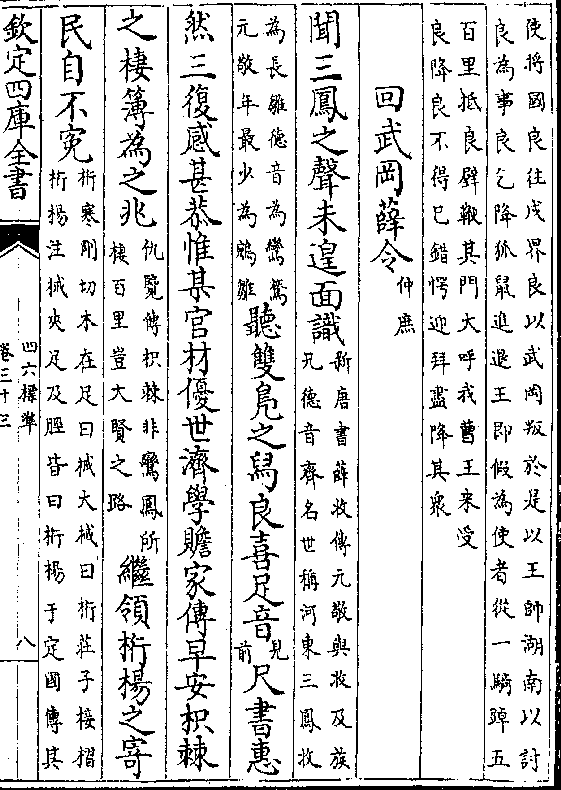 使將國良往戍界良以武岡叛於是以王師湖南以討
良為事良乞降狐鼠進退王即假為使者從一騎踔五
百里抵良壁鞭其門大呼我曹王来受
良降良不得已錯愕迎拜盡降其衆
回武岡薛令仲庶
聞三鳳之聲未遑面識新唐書薛收傳元敬與收及族
兄德音齊名世稱河東三鳳收
為長雛德音為鸑鷟
元敬年最少為鵷雛聽雙鳬之舄良喜足音見
前尺書惠
然三復感甚恭惟某官材優世濟學贍家傳早安枳棘
之棲簿為之兆仇覽傳枳棘非鸞鳳所
棲百里豈大賢之路繼領桁楊之寄
民自不寃桁寒剛切木在足曰械大械曰桁莊子接槢
桁楊注械夾足及脛皆曰桁楊于定國傳其
欽定四庫全書
四六標準
卷三十三
八